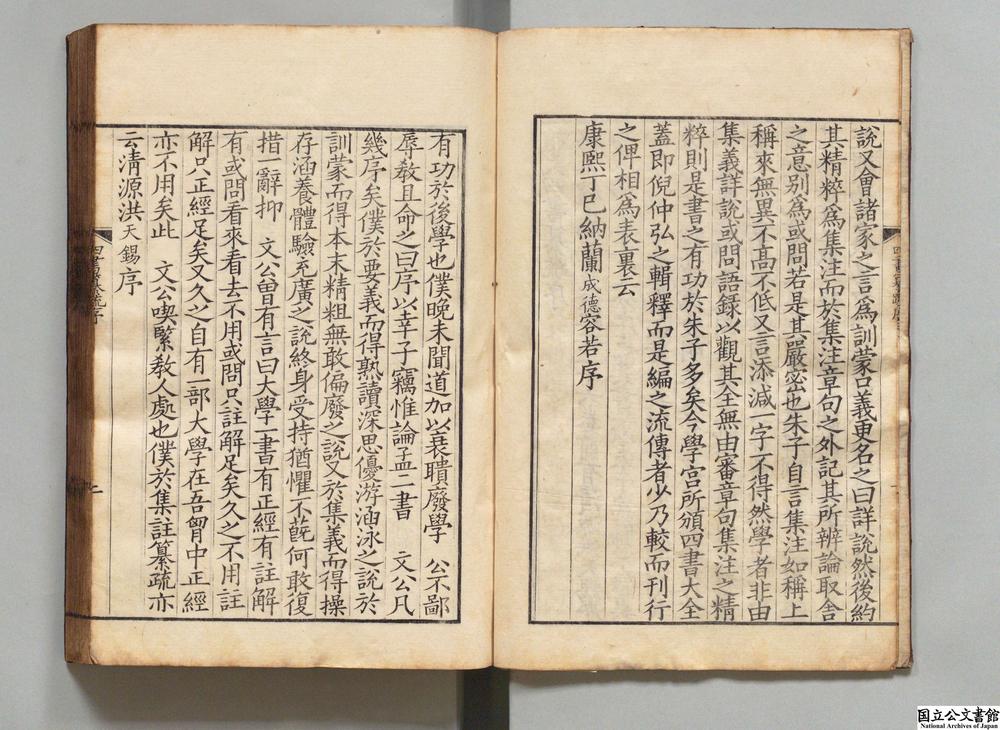 說又會諸家之言爲訓蒙口義更名之曰詳說然後約
其精粹爲集注而於集注章句之外記其所辨論取舍
之意别爲或問若是其嚴密也朱子自言集注如稱上
稱來無異不髙不低又言添減一字不得然學者非由
集義詳說或問語録以觀其全無由審章句集注之精
粹則是書之有功於朱子多矣今學宫所頒四書大全
蓋即倪仲弘之輯釋而是編之流傳者少乃較而刊行
之俾相爲表裏云
康熙丁巳納蘭成德容若序
有功於後學也僕晚未聞道加以衰聵廢學 公不鄙
辱敎且命之曰序以幸子竊惟論孟二書 文公凡
幾序矣僕於要義而得熟讀深思優游涵泳之說於
訓蒙而得本末精粗無敢偏廢之說又於集義而得操
存涵養體驗充廣之說終身受持猶懼不蔇何敢復
措一辭抑 文公曾有言曰大學一書有正經有註解
有或問看來看去不用或問只註解足矣久之不用註
解只正經足矣又久之自有一部大學在吾胷中正經
亦不用矣此 文公喫緊敎人處也僕於集註纂疏亦
云淸源洪天錫序
四書纂疏序
國立公文書館
National Archives of Japan